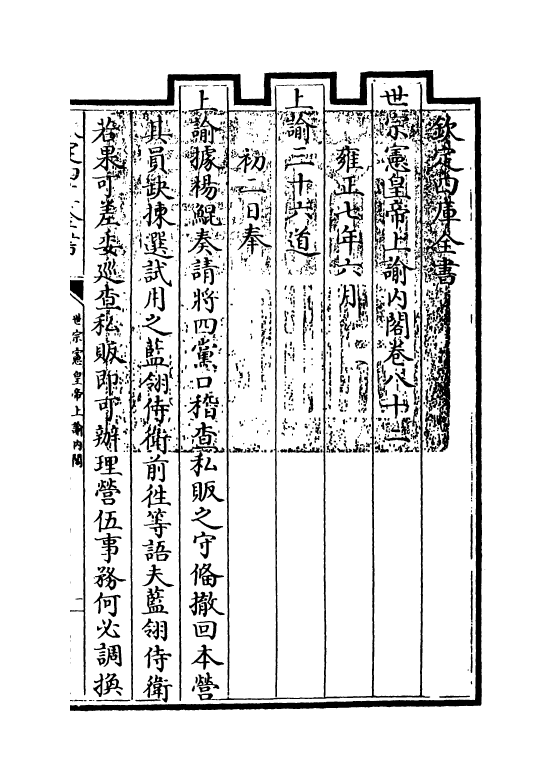 欽定四庫全書
世宗憲皇帝上諭內閣卷八十二
雍正七年六月
上諭二十六道
初一日奉
上諭據楊鯤奏請將四黨口稽查私販之守備撤回本營
其員缺揀選試用之藍翎侍衛前徃等語夫藍翎侍衛
若果可差委巡查私販即可辦理營伍事務何必調換
世宗憲皇帝上諭內閣